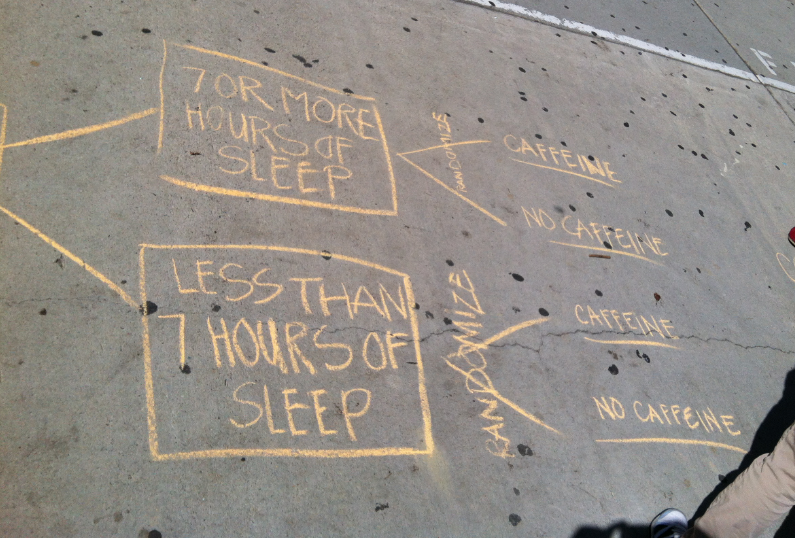 7 OR MORE
HOURS OF
SLEEP
RANDOMIZE
CAFFEINE
NO CAFFEINE
LESS THAN
7 HOURS OF
SLEEP
RANDOMIZE
CAFFEINE
NO CAFFEINE